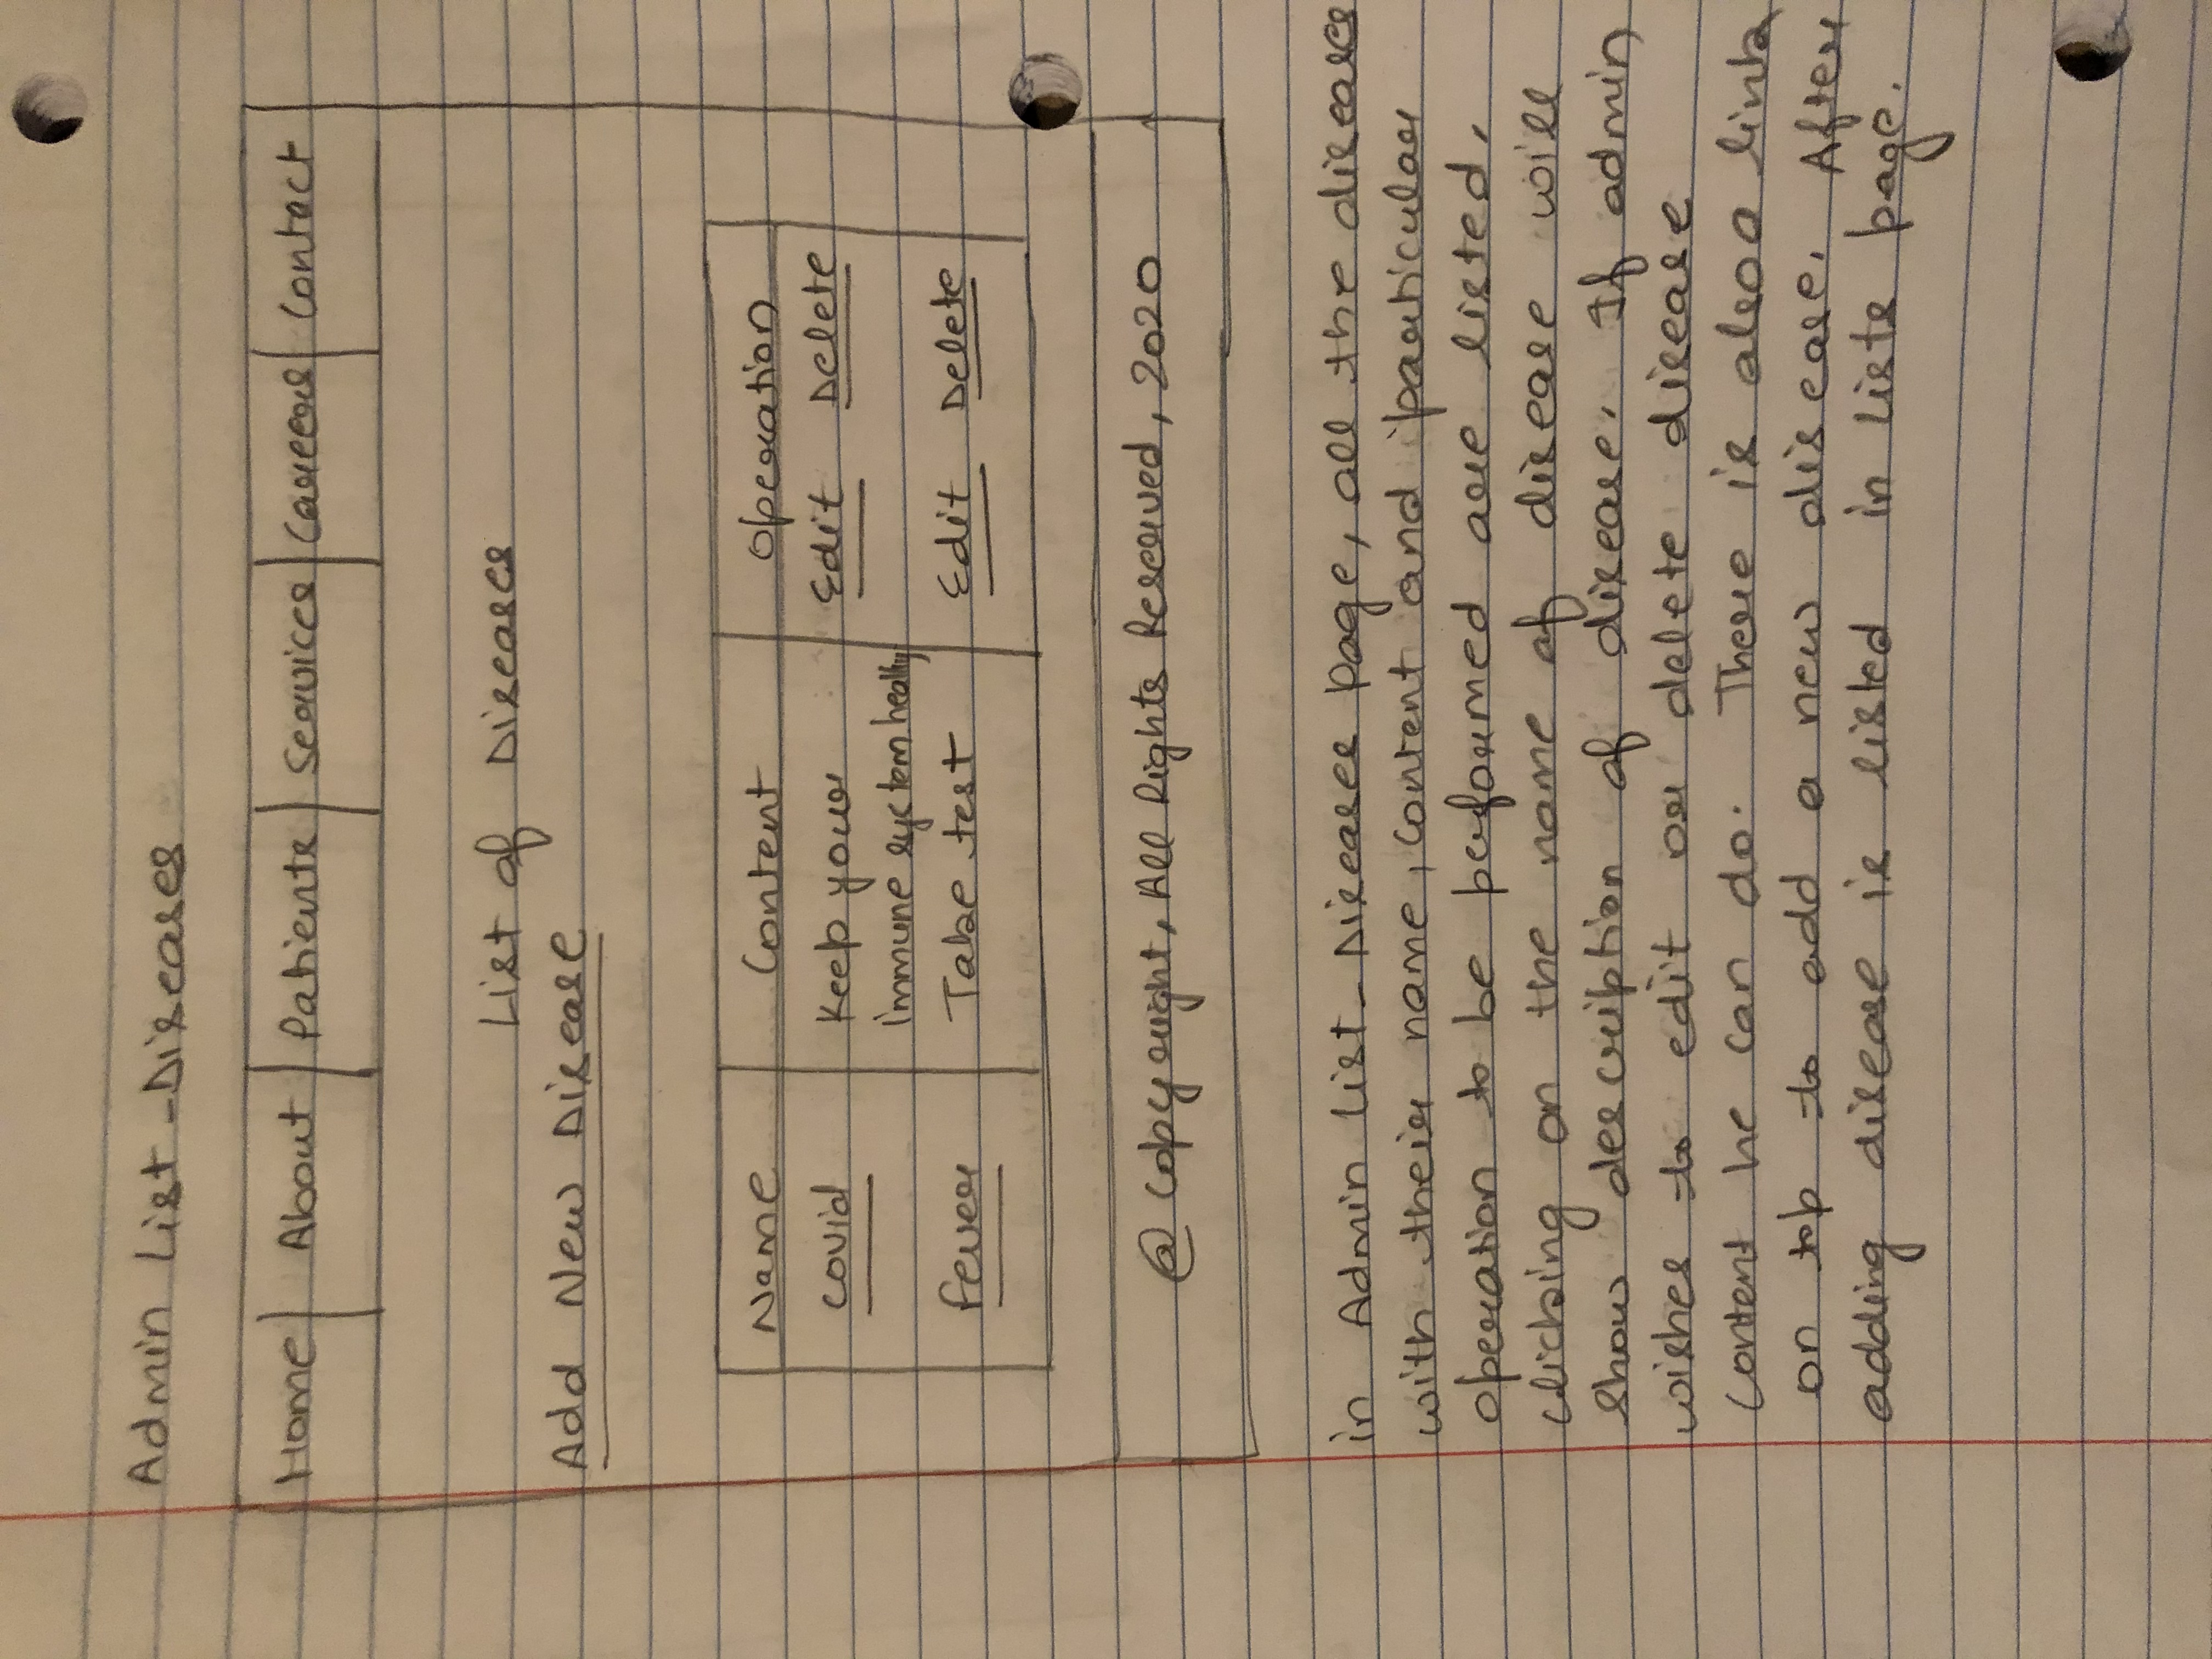 Admin List -Diseases
Home About Patients Services Careers Contact
List of Diseases
Add New Disease
Name Content Operation
covid Keep your Edit Delete
immune system healthy
fever Take test Edit Delete
@ Copyright, All Rights Reserved, 2020
in Admin list - Diseases page, all the diseases
with their name, content and particular
operation to be performed are listed.
clicking on the name of disease will
show description of disease. If admin
wishes to edit or delete disease
content he can do. There is also a link
on top to add a new disease. After
adding disease is listed in lists page.